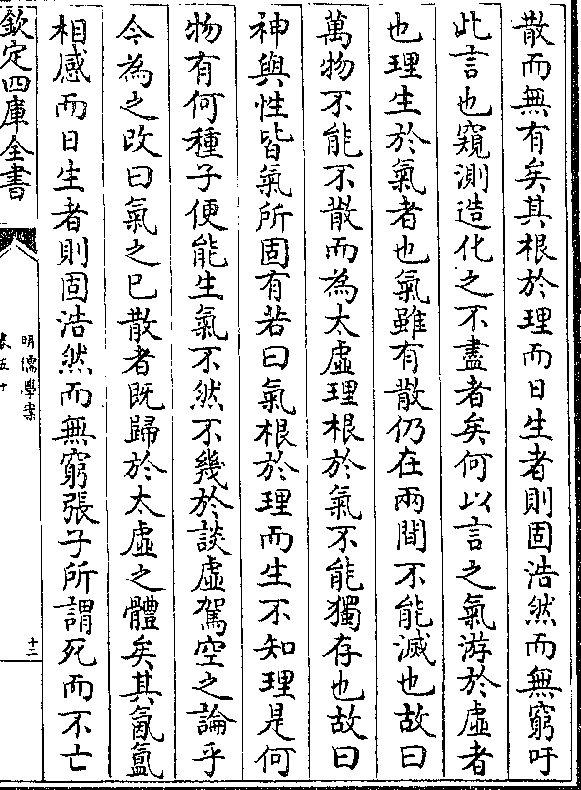 散而無有矣其根於理而日生者則固浩然而無窮吁
此言也窺測造化之不盡者矣何以言之氣游於虛者
也理生於氣者也氣雖有散仍在兩間不能滅也故曰
萬物不能不散而為太虛理根於氣不能獨存也故曰
神與性皆氣所固有若曰氣根於理而生不知理是何
物有何種子便能生氣不然不幾於談虛駕空之論乎
今為之改曰氣之已散者既歸於太虛之體矣其氤氲
相感而日生者則固浩然而無窮張子所謂死而不亡
欽定四庫全書
明儒學案
卷五十
十三